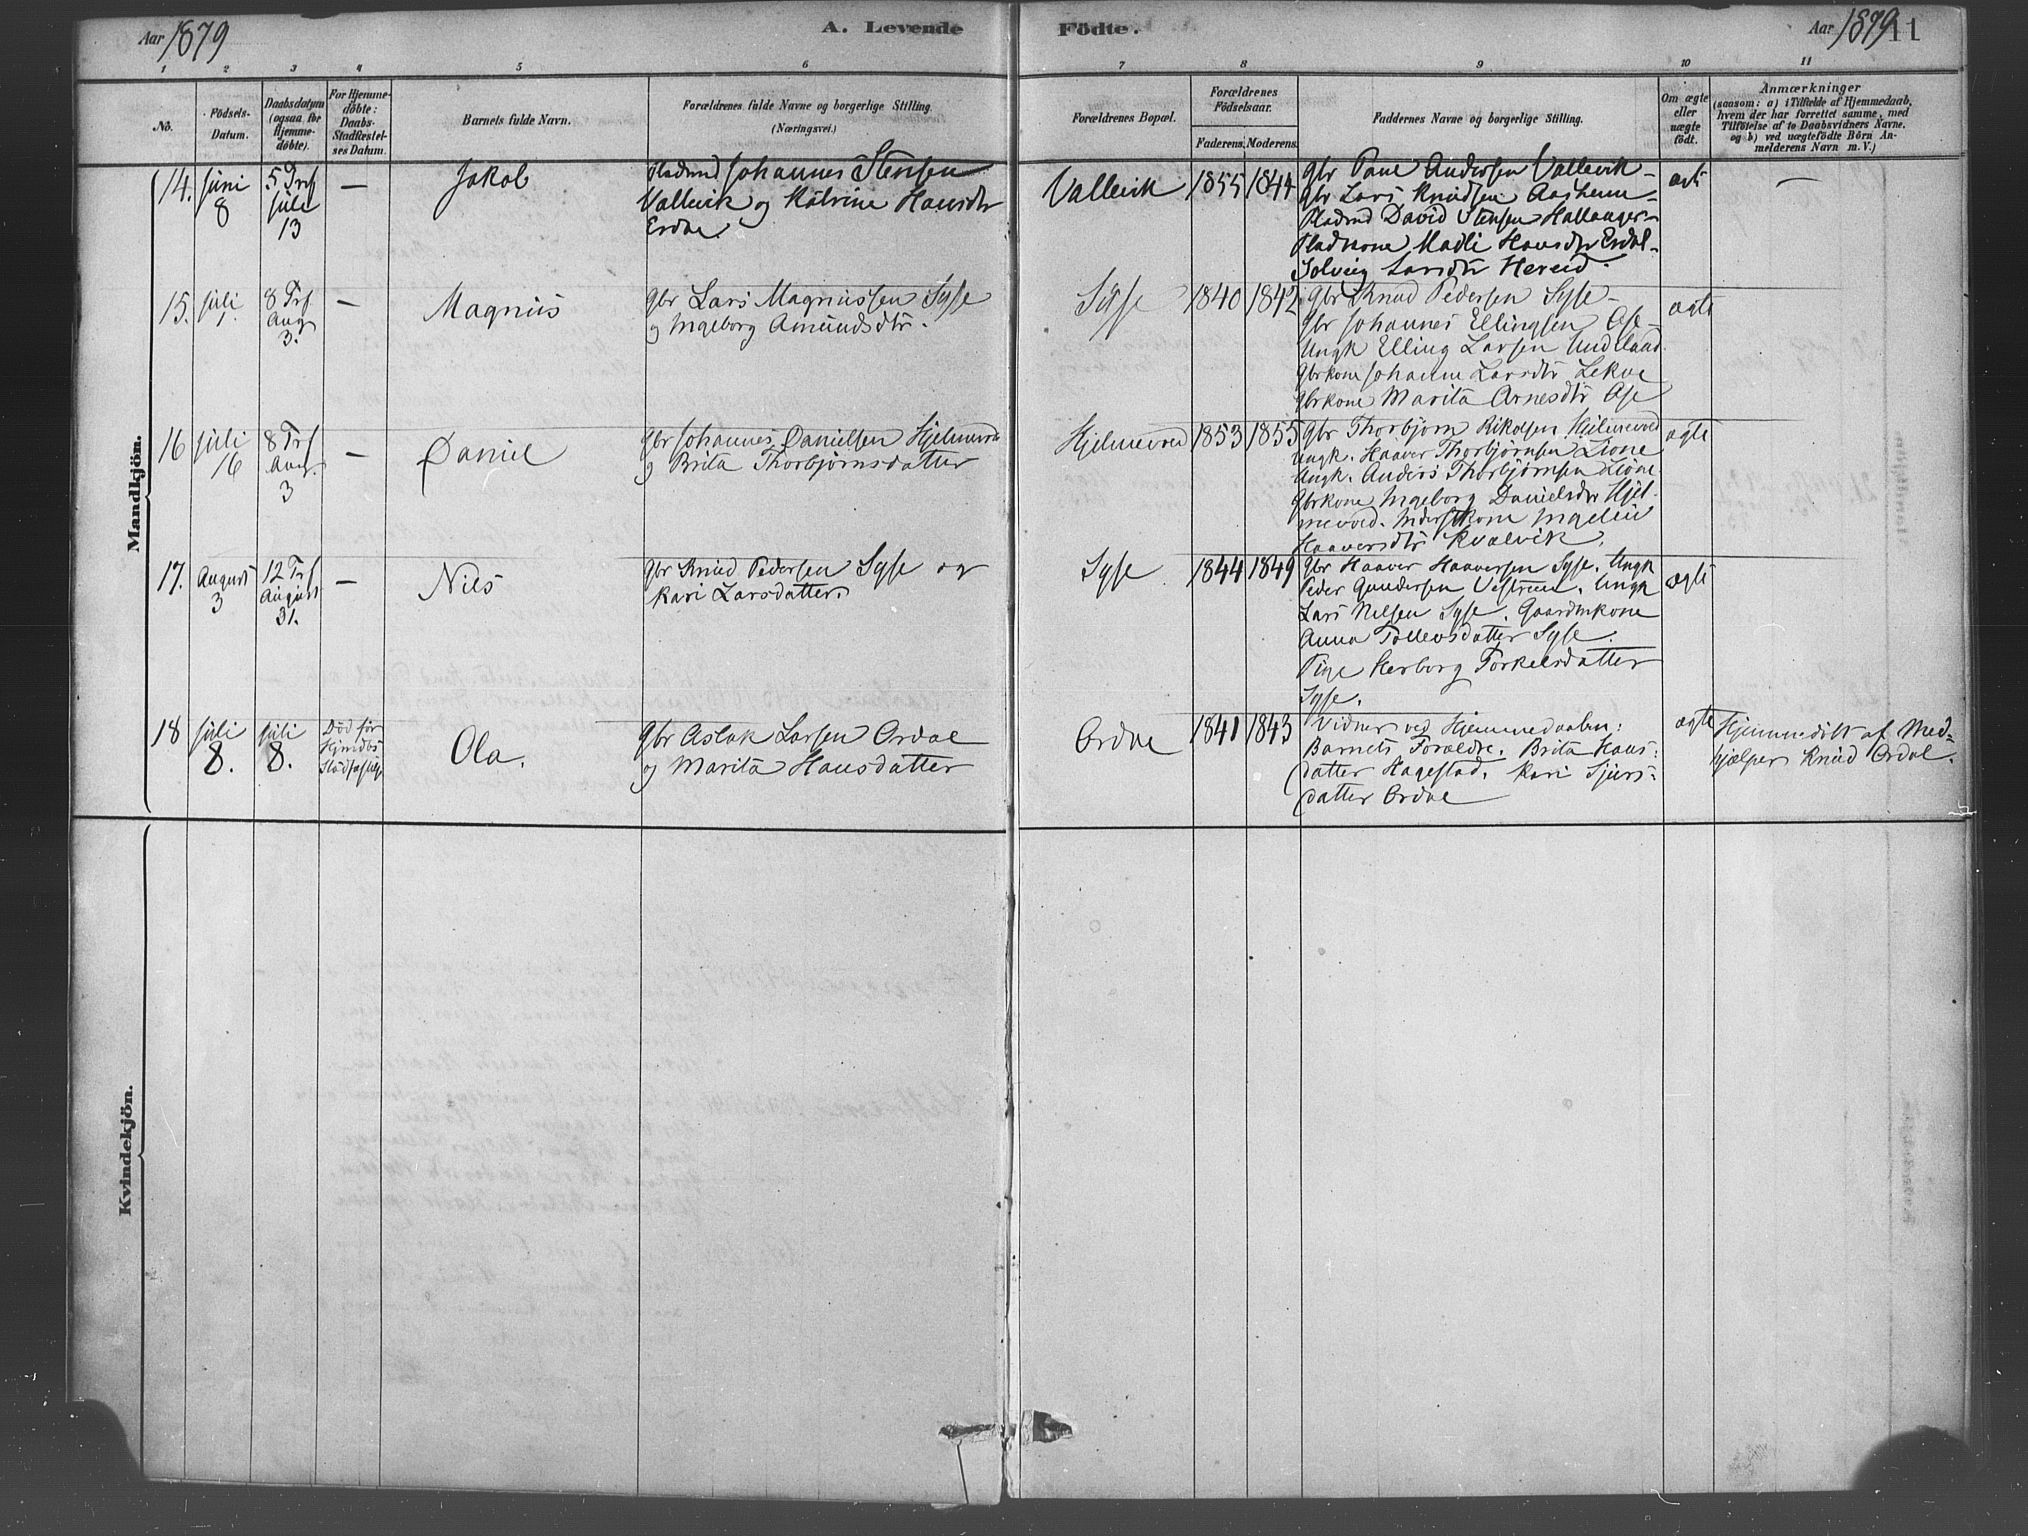 Aar 1879
A. Levende
Födte.
Aar 1879
11
1 2 3 4 5 6 7 8 9 10 11
No.
Födsels-
Datum.
Daabsdatum
(ogsaa for
Hjemme-
döbte).
For Hjemme-
döbte:
Daabs-
Stadfæstel-
ses Datum.
Barnets fulde Navn.
Forældrenes fulde Navne og borgerlige Stilling.
(Næringsvei.)
Forældrenes Bopæl.
Forældrenes
Födselsaar.
Faderens. Moderens.
Faddernes Navne og borgerlige Stilling.
Om ægte
eller
uægte
födt.
Anmærkninger
(saasom: a) i Tilfælde af Hjemmedaab,
hvem der har forrettet samme, med
Tilföielse af to Daabsvidners Navne,
og b) ved uægtefödte Börn An-
melderens Navn m. V.)
Mandkjön.
14. Juni
8
5 Trf
Juli
13
—
Jakob
Pladsmd Johannes Stensen
Vallevik og Katrine Hansdtr
Erdae
Vallevik
1855 1844
Gbr Paul Andersen Vallevik –
Gbr Lars Knudsen Aasheim –
Pladsmd David Stensen Hallanger –
Pladskone Madli Hansdtr Erdal –
Solveig Larsdtr Hereid.
ægte
—
15. Juli
1.
8 Trf
Aug
3.
—
Magnus
Gbr Lars Magnussen Syse
og Ingeborg Amundsdtr.
Syse
1840 1842
Gbr Knud Pedersen Syse –
Gbr Johannes Ellingsen Ose –
Ungk Elling Larsen Undeland
Gbrkone Johanne Larsdtr Lekve
Gbrkone Marita Arnesdtr Ose
ægte
16 Juli
16
8 Trf
Aug.
3
—
Daniel
Gbr Johannes Danielsen Hjelmevold
og Brita Thorbjørnsdatter
Hjelmevold
1853 1855
Gbr Thorbjørn Rikolsen Hjelmevold
Ungk. Haaver Thorbjørnsen Lione
Ungk. Anders Thorbjørnsen Lione
Gbrkone Ingeborg Danielsdtr Hjel-
mevold. Inderstkone Ingelin
Haaversdtr Kvalvik.
ægte
17. August
3
12 Trf
August
31.
—
Nils
Gbr Knud Pedersen Syse og
Kari Larsdatter.
Syse
1844 1849
Gbr Haaver Haaversen Syse. Ungk
Peder Gundersen Vestrem. Ungk
Lars Nilsen Syse. Gaardmkone
Anna Tollevsdatter Syse.
Pige Herborg Torkelsdatter
Syse.
ægte
18 Juli
8.
Juli
8.
Død før
Hjmdbs
Stadfæstelse
Ola.
Gbr Aslak Larsen Ordal
og Marita Hansdatter
Ordal
1841 1843
Vidner ved Hjemmedaaben:
Barnets Forældre. Brita Hans-
datter Hagestad. Kari Sjurs-
datter Ordal
ægte
Hjemmedøbt af Med-
hjælper Knud Ordal.
Kvindekjön.